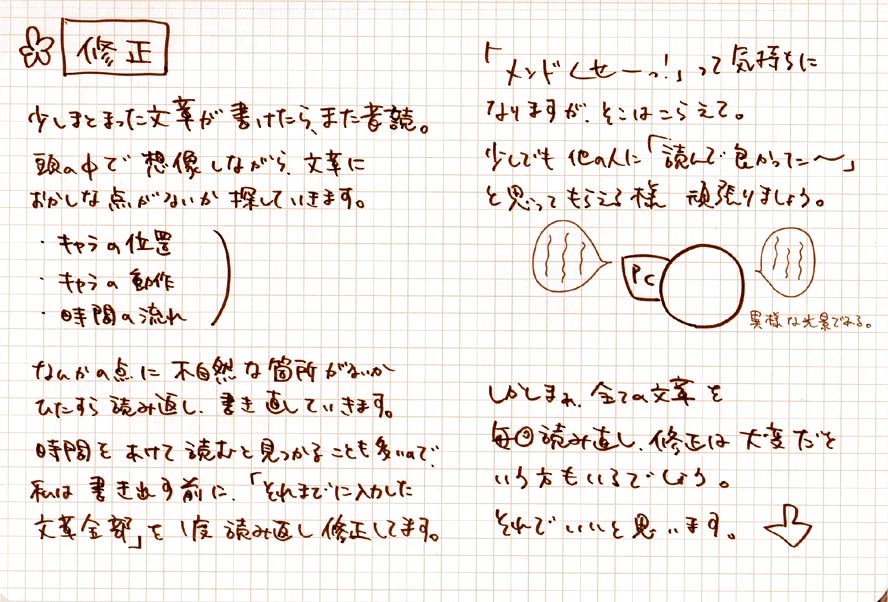 修正
少しまとまった文章が書けたら、また音読。
頭の中で想像しながら、文章に
おかしな点がないか探していきます。
・キャラの位置
・キャラの動作
・時間の流れ
なんかの点に不自然な箇所がないか
ひたすら読み返し、書き直していきます。
時間をあけて読むと見つかることも多いので、
私は書き出す前に、「それまでに入力した
文章全部」を1度読み返し修正してます。
「メンドくせーっ!」って気持ちに
なりますが、そこはこらえて。
少しでも他の人に「読んで良かった〜」
と思ってもらえる様頑張りましょう。
PC
異様な光景である。
しかしまぁ、全ての文章を
毎回読み直し、修正は大変だと
いう方もいるでしょう。
それでいいと思います。